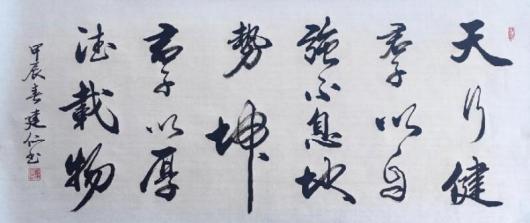 天行健
君子以自
强不息地
勢坤
君子以厚
德載物
甲辰春建仁书